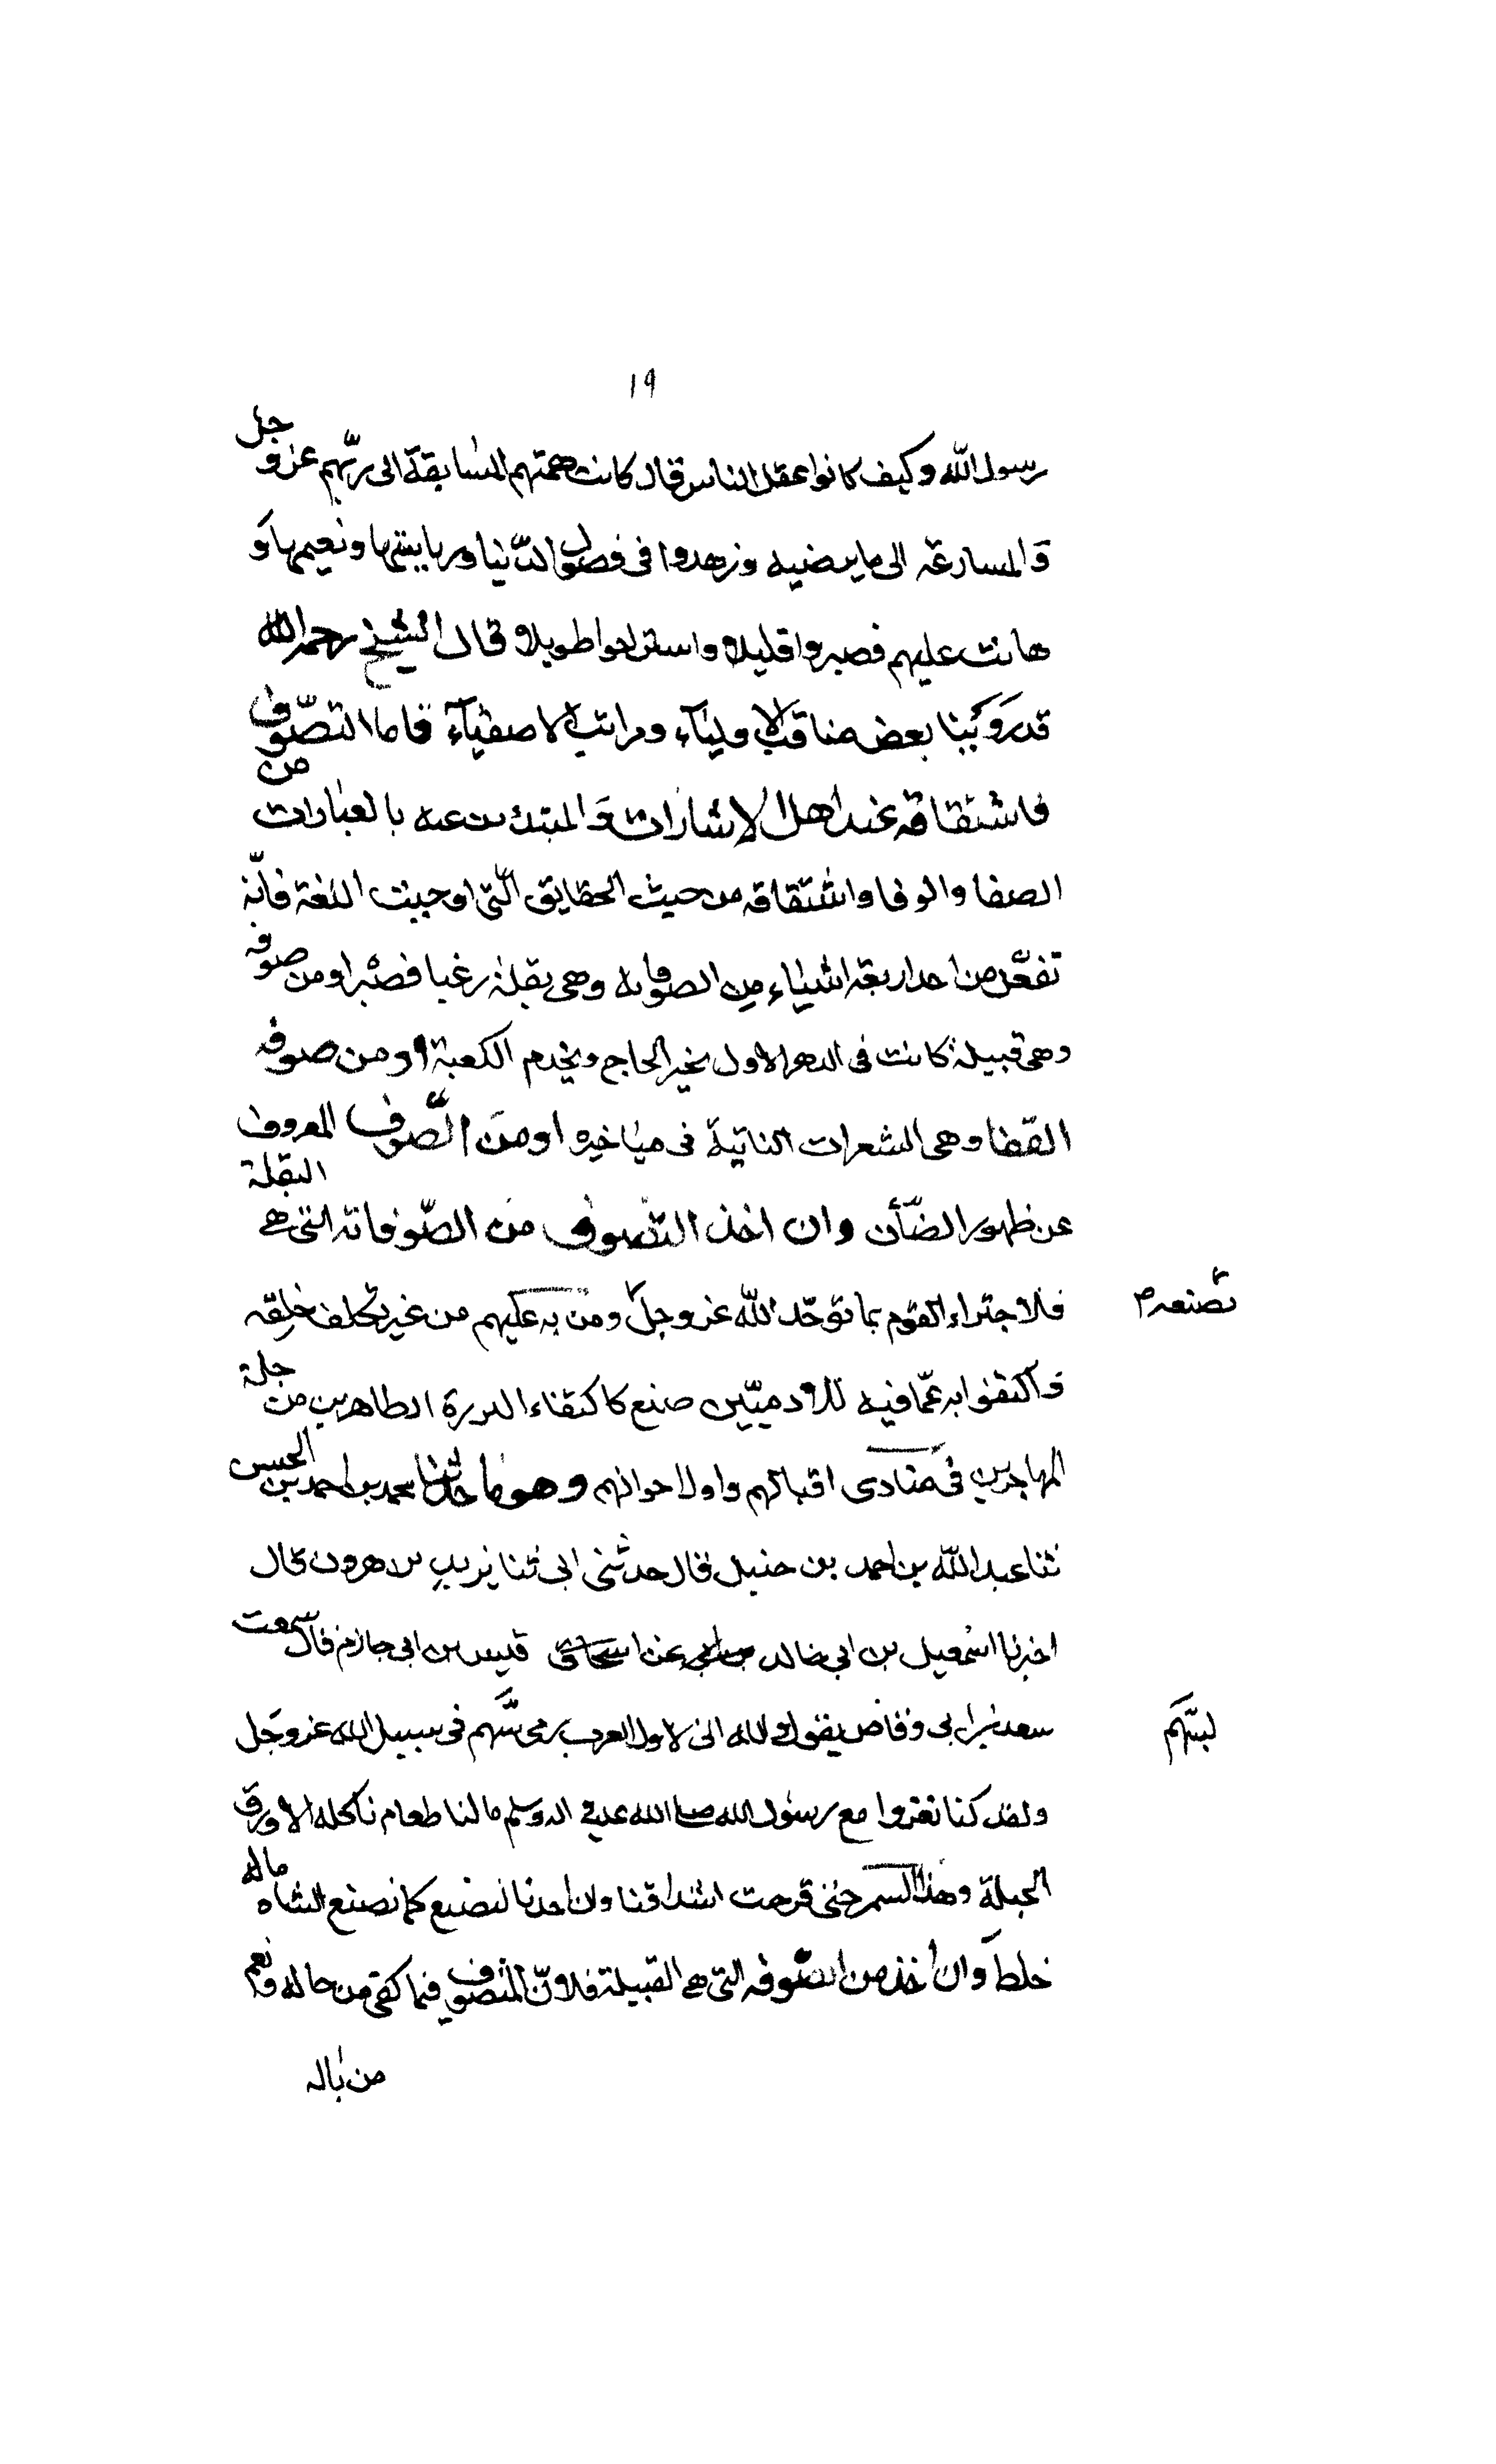 ١٩
رسول الله وكيف كانوا عقل الناس قال كانت همتهم المسابقة الى ربّهم عز و جل
وَالمسارعة الى ما يرضيه وزهدوا فى فصول الدّنيا ورياستها ونعيمها وَ
هانت عليهم فصبروا قليلا واستراحوا طويلا قال الشيخ رحمه الله
قد رَوَينا بعض مناقب الاوليَآء ومراتب الاصفيَآء فاما التصوّف
فاشتقاقه عند اهل الاشارات وَالمبتدئين عنه بالعبارات من
الصفا والوفا واشتقاقه من حيث الحقايق الّتى اوجبت اللغة فانّه
تفعّل من احد اربعة اشياء من الصوفانة وهى بقلة رغبا قصيرا ومن صوفه
وهى قبيلة كانت فى الدهر الاول يخير الحاج ويخدم الكعبة او من صوفه
القفا وهى الشعرات الناتية فى مياخيره او من الصّوف المعروف
عن ظهور الضّأن وان اخذ التصوف من الصّوفانة التى هى البقلة
فلاجتراء القوم بما توحّد الله عز وجلّ ومن به عليهم من غير تكلف خلقه
تصنعه م
فاكتفوا به عمّا فيه للادميّين صنع كاكتفاء البررة الطاهرين من جلة
المهاجرين فى منادى اقبالهم واول احوالهم وهو ما حدثنا محمد بن احمد بن الحسن
ثنا عبد الله بن احمد بن حنبل قال حدثنى ابى ثنا يزيد بن هرون قال
اخبرنا اسمعيل بن ابى خالد عن قيس بن ابى حازم قال سمعت
سعد بن ابى وقاص يقول والله انى لاول العرب رمى بسهم فى سبيل الله عز وجل
لبسَهم
ولقد كنا نغزوا مع رسول الله صلى الله عليه واله وسلم ما لنا طعام ناكله الا ورق
الحبلة وهذا السمر حتى قرحت اشداقنا وان احدنا ليضع كما تضع الشاه ماله
خلط وان أخذ من الصّوفه التى هى القبيلة فلانّ المتصوف فيما كفى من حاله ونعم
من باله